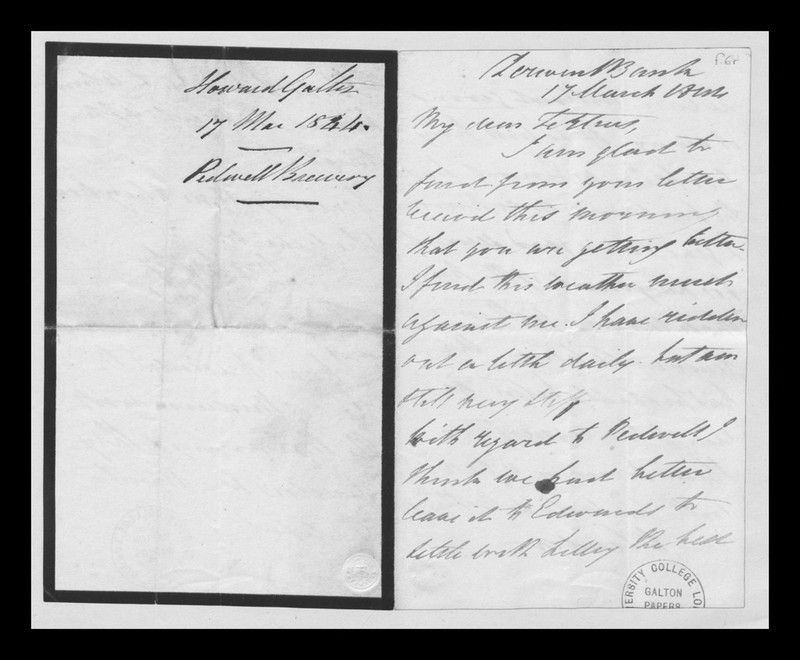 Howard Galton
17 Mar 1844.
Pedwell Brewery
f.6r
Derwent Bank
17 March 1844
My dear Tertius,
I am glad to
find from your letter
receivd this morning
that you are getting better.
I find this weather much
against me. I have ridden
out a little daily but am
still very stiff
With regard to Pedwell I
think we had better
leave it to Edwards to
settle with the
UNIVERSITY COLLEGE LO
GALTON
PAPERS